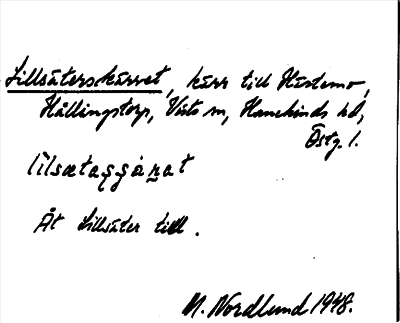 Lillsäterskärret, kärr till Hästemo,
Hällingstorp, Visto sn, Hanekinds hd,
Östg. l.
lilsætaşşáṟat
Åt Lillsäter till.
M. Nordlund 1948.